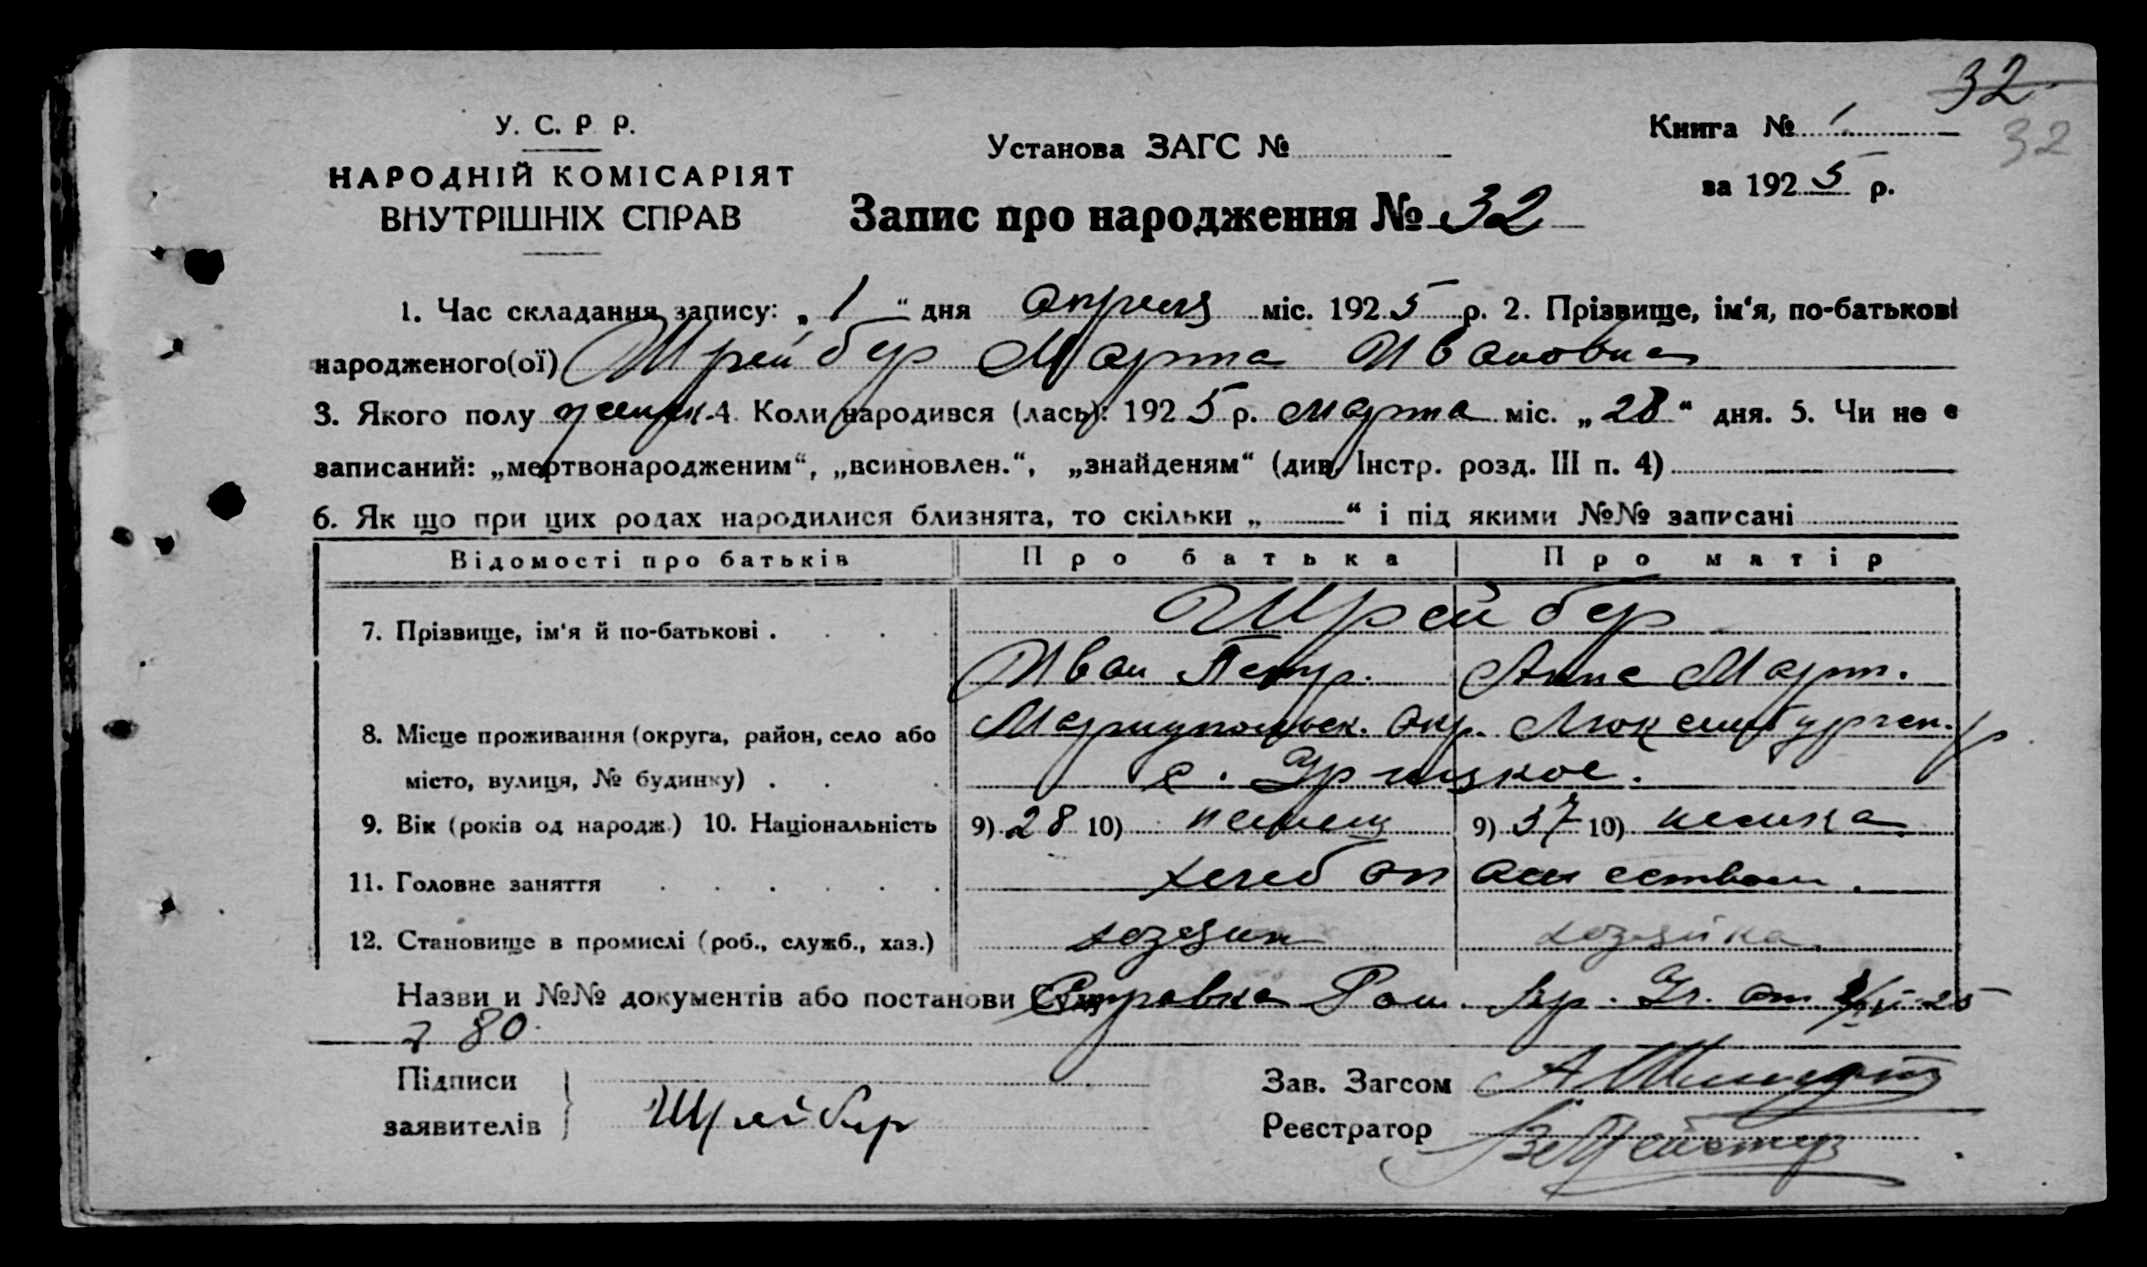 32
32
У. С. Р. Р.
НАРОДНІЙ КОМІСАРІЯТ
ВНУТРІШНІХ СПРАВ
Установа ЗАГС №
Книга № 1
за 1925 р.
Запис про народження № 32
1. Час складання запису: „1“ дня апреля міс. 1925 р. 2. Прізвище, ім‘я, по-батькові
народженого(ої) Шрейбер Марта Ивановна
3. Якого полу женск. 4. Коли народився (лась): 1925 р. марта міс. „28“ дня. 5. Чи не є
записаний: „мертвонародженим“, „всиновлен.“, „знайденям“ (див. Інстр. розд. III п. 4)
6. Як що при цих родах народилися близнята, то скільки „ “ і під якими №№ записані
Відомості про батьків Про батька Про матір
7. Прізвище, ім‘я й по-батькові . Шрейбер
Иван Петр. Анна Март.
8. Місце проживання (округа, район, село або Мариупольск. окр. Люксембургск. р
місто, вулиця, № будинку) . с. Урицкое.
9. Вік (років од народж.) 10. Національність 9) 28 10) немец 9) 37 10) немка
11. Головне заняття хлебопашеством.
12. Становище в промислі (роб., служб., хаз.) хозяин хозяйка.
Назви и №№ документів або постанови Суду Справка от 25
80.
Підписи
заявителів
Шрейбер
Зав. Загсом
Реєстратор